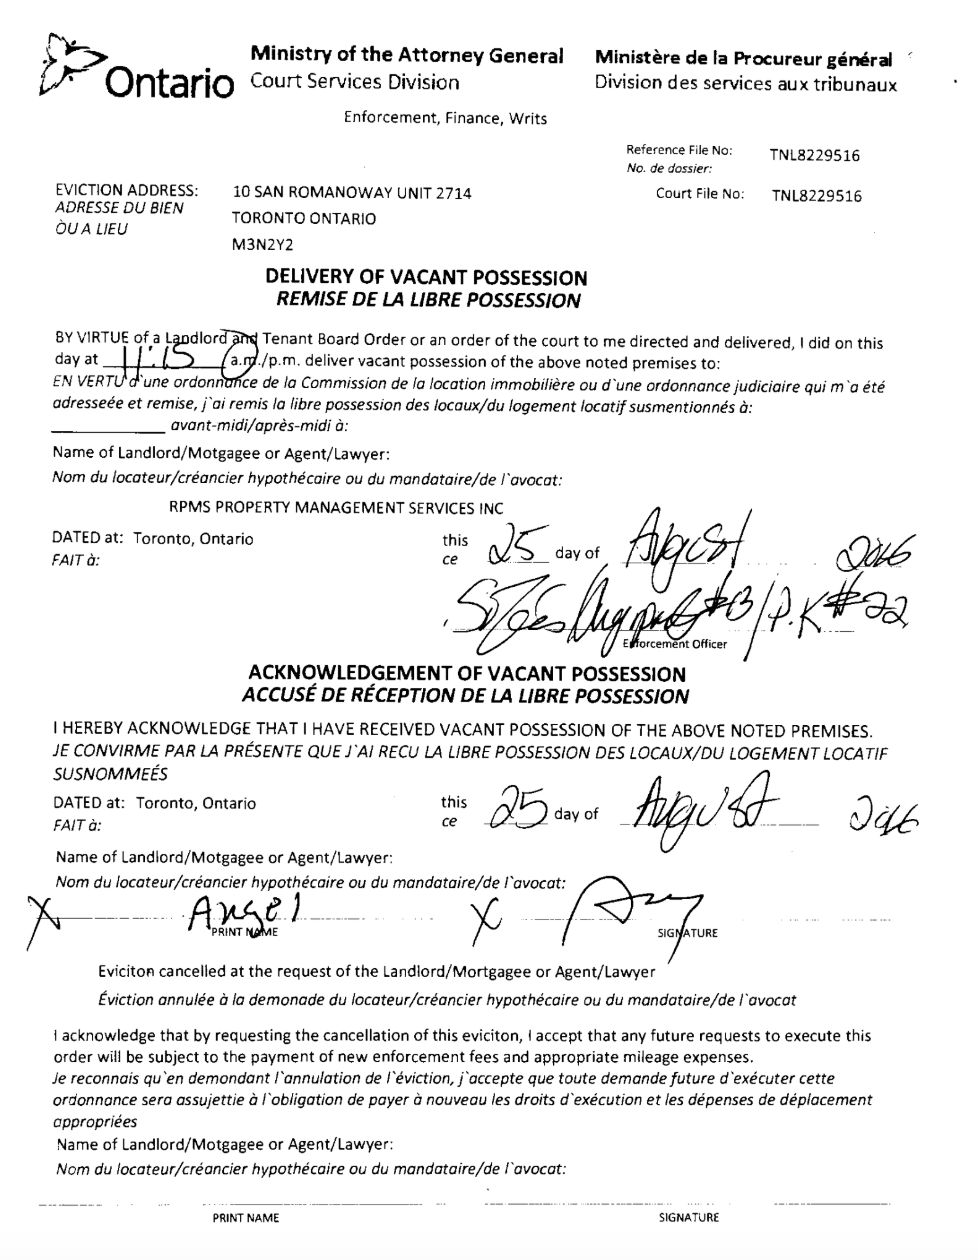 Ontario
Ministry of the Attorney General
Court Services Division
Ministère de la Procureur général
Division des services aux tribunaux
Enforcement, Finance, Writs
Reference File No: TNL8229516
No. de dossier:
Court File No: TNL8229516
EVICTION ADDRESS: 10 SAN ROMANOWAY UNIT 2714
ADRESSE DU BIEN TORONTO ONTARIO
ÒU A LIEU
M3N2Y2
DELIVERY OF VACANT POSSESSION
REMISE DE LA LIBRE POSSESSION
BY VIRTUE of a Landlord and Tenant Board Order or an order of the court to me directed and delivered, I did on this
day at 11:15 a.m./p.m. deliver vacant possession of the above noted premises to:
EN VERTU d`une ordonnance de la Commission de la location immobilière ou d'une ordonnance judiciaire qui m`a été
adresseée et remise, j`ai remis la libre possession des locaux/du logement locatif susmentionnés à:
avant-midi/après-midi à:
Name of Landlord/Motgagee or Agent/Lawyer:
Nom du locateur/créancier hypothécaire ou du mandataire/de l`avocat:
RPMS PROPERTY MANAGEMENT SERVICES INC
DATED at: Toronto, Ontario this 25 day of August 2016
FAIT à: ce
#13/P.K #22
Enforcement Officer
ACKNOWLEDGEMENT OF VACANT POSSESSION
ACCUSÉ DE RÉCEPTION DE LA LIBRE POSSESSION
I HEREBY ACKNOWLEDGE THAT I HAVE RECEIVED VACANT POSSESSION OF THE ABOVE NOTED PREMISES.
JE CONVIRME PAR LA PRÉSENTE QUE J`AI RECU LA LIBRE POSSESSION DES LOCAUX/DU LOGEMENT LOCATIF
SUSNOMMEÉS
DATED at: Toronto, Ontario this 25 day of August 2016
FAIT à: ce
Name of Landlord/Motgagee or Agent/Lawyer:
Nom du locateur/créancier hypothécaire ou du mandataire/de l`avocat:
X Angel X
PRINT NAME SIGNATURE
Eviciton cancelled at the request of the Landlord/Mortgagee or Agent/Lawyer
Éviction annulée à la demonade du locateur/créancier hypothécaire ou du mandataire/de l`avocat
I acknowledge that by requesting the cancellation of this eviciton, I accept that any future requests to execute this
order will be subject to the payment of new enforcement fees and appropriate mileage expenses.
Je reconnais qu`en demondant l`annulation de l`éviction, j`accepte que toute demande future d'exécuter cette
ordonnance sera assujettie à l`obligation de payer à nouveau les droits d`exécution et les dépenses de déplacement
appropriées
Name of Landlord/Motgagee or Agent/Lawyer:
Nom du locateur/créancier hypothécaire ou du mandataire/de l`avocat:
PRINT NAME SIGNATURE